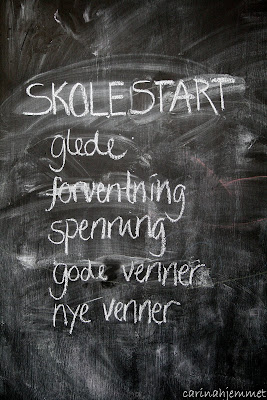 SKOLESTART
glede
forventning
spenning
gode venner
nye venner
carinahjemmet